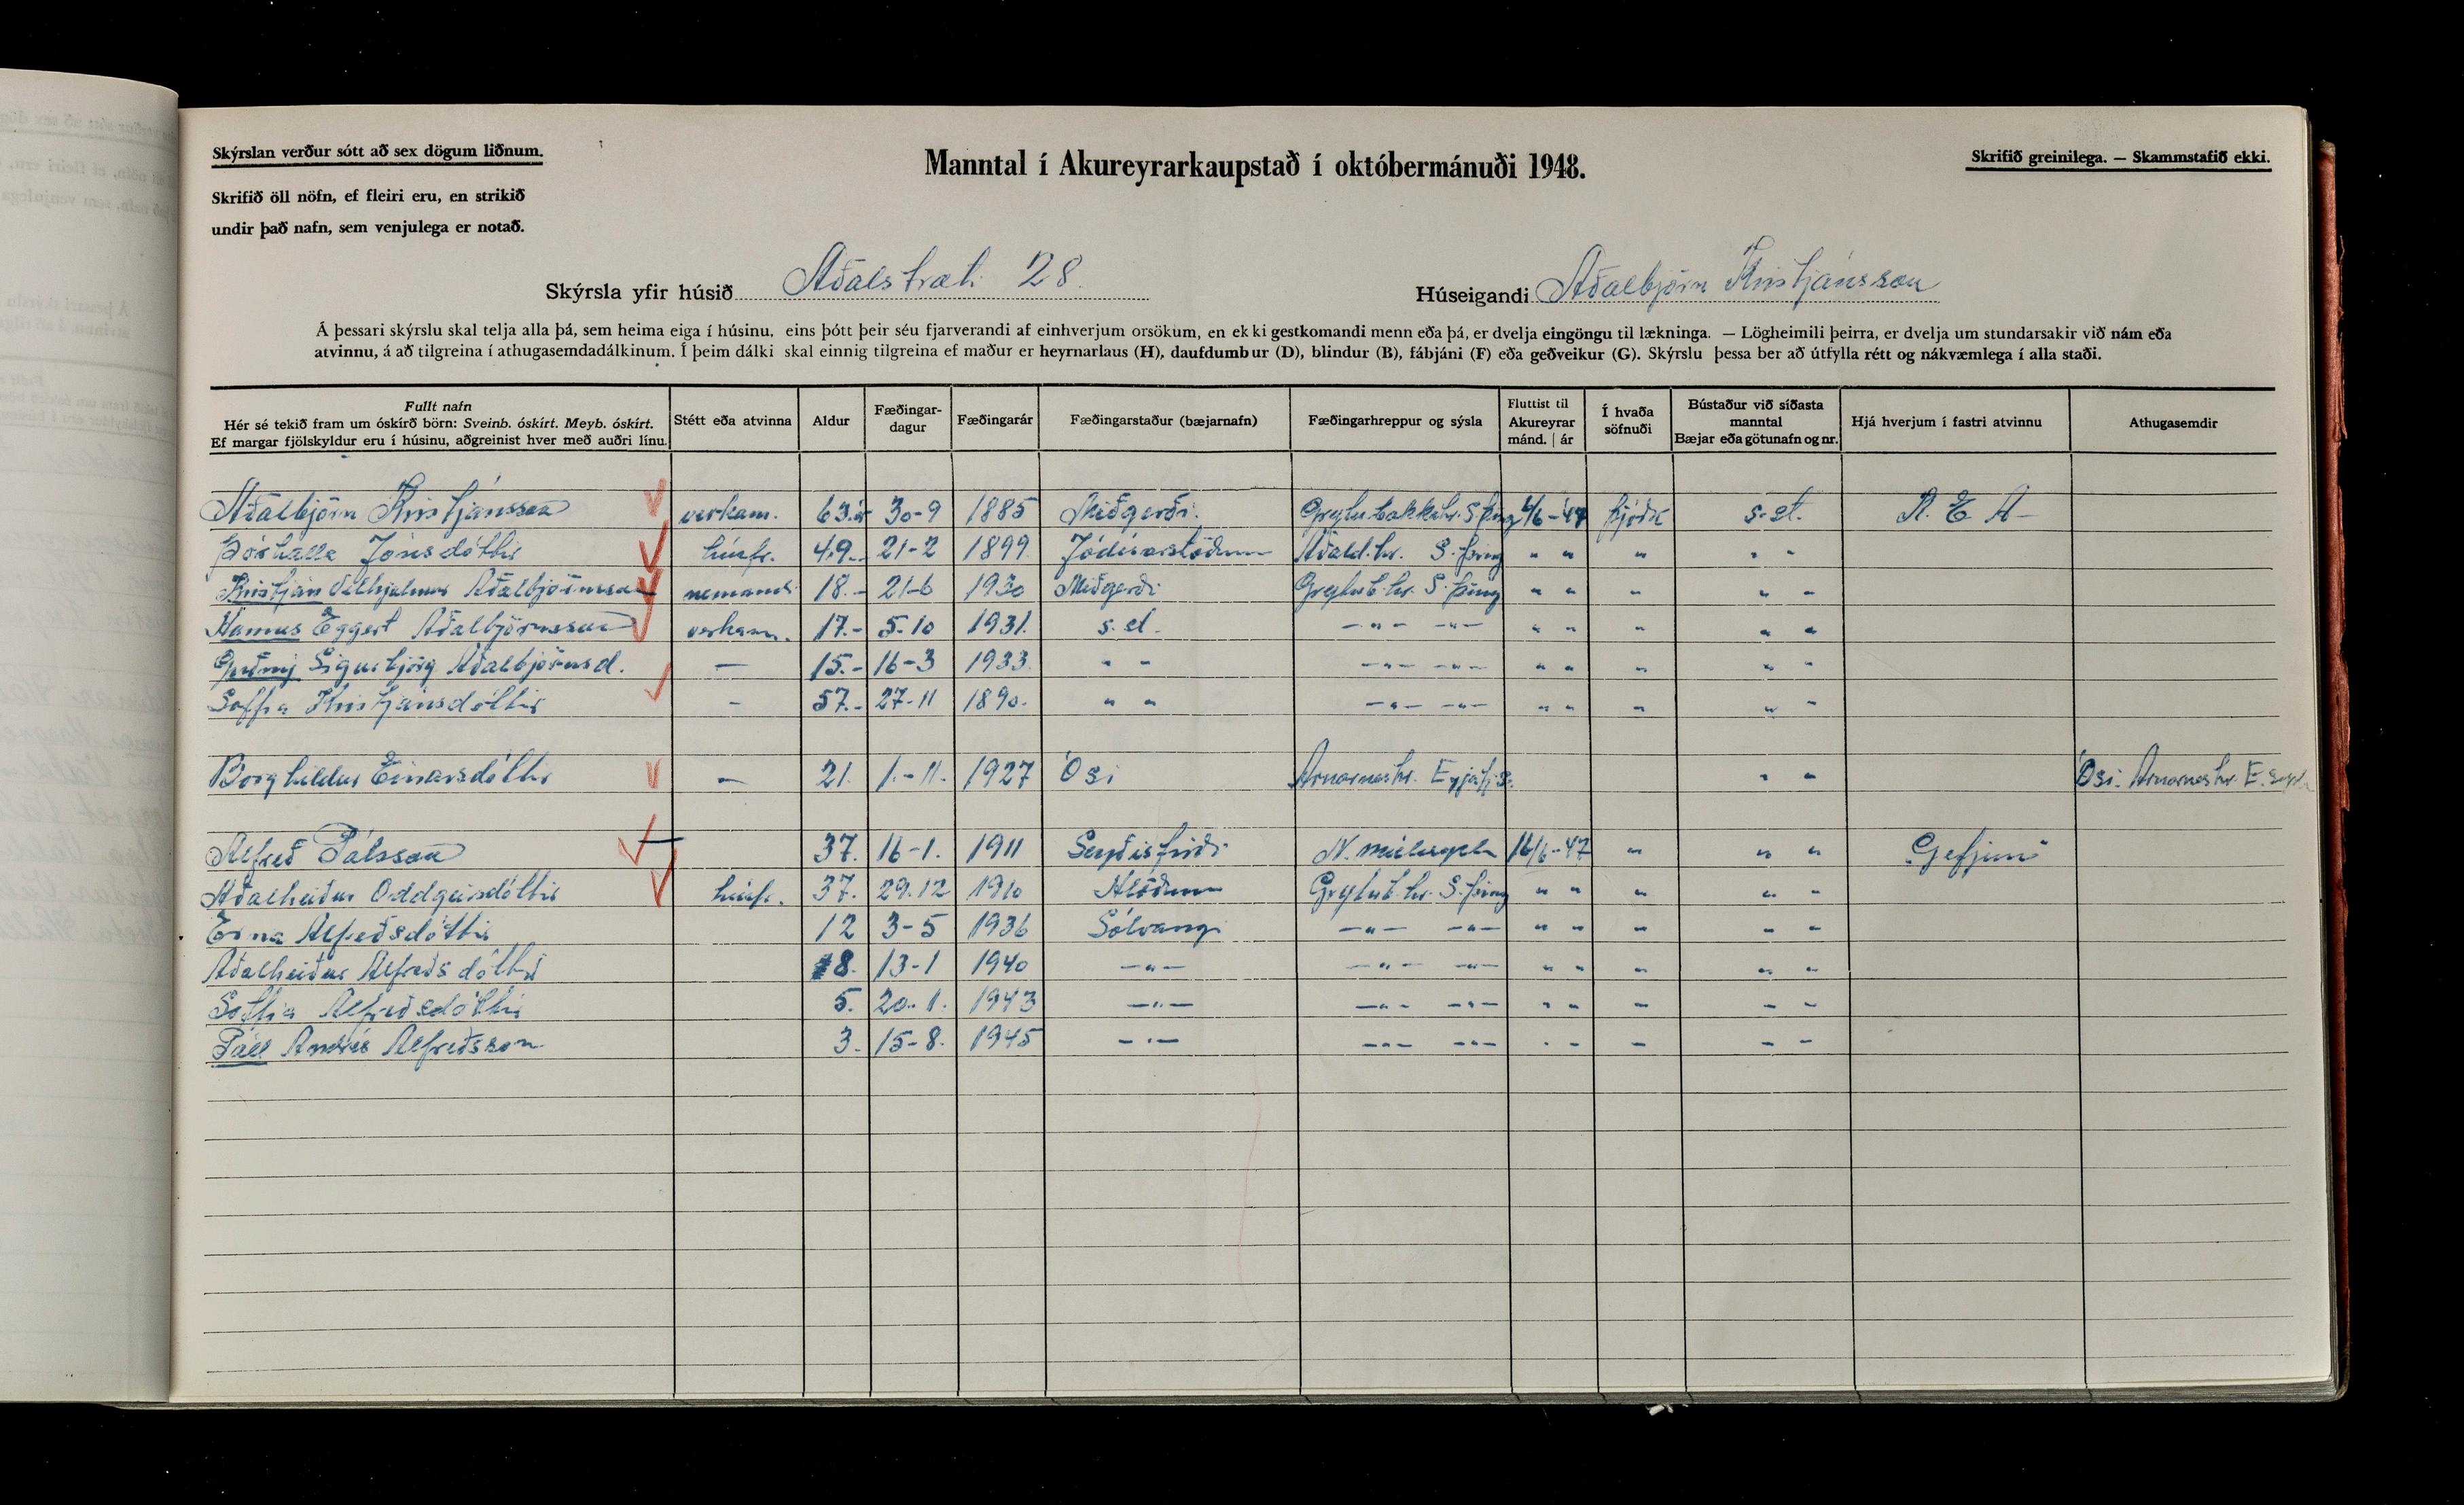 Skýrslan verður sótt að sex dögum liðnum.
Manntal í Akureyrarkaupstað í októbermánuði 1948.
Skrifið greinilega. — Skammstafið ekki.
Skrifið öll nöfn, ef fleiri eru, en strikið
undir það nafn, sem venjulega er notað.
Skýrsla yfir húsið Aðalstræti 28. Húseigandi Aðalbjörn Kristjánsson
Á þessari skýrslu skal telja alla þá, sem heima eiga í húsinu, eins þótt þeir séu fjarverandi af einhverjum orsökum, en ekki gestkomandi menn eða þá, er dvelja eingöngu til lækninga. — Lögheimili þeirra, er dvelja um stundarsakir við nám eða
atvinnu, á að tilgreina í athugasemdadálkinum. Í þeim dálki skal einnig tilgreina ef maður er heyrnarlaus (H), daufdumbur (D), blindur (B), fábjáni (F) eða geðveikur (G). Skýrslu þessa ber að útfylla rétt og nákvæmlega í alla staði.
Fullt nafn
Hér sé tekið fram um óskírð börn: Sveinb. óskírt. Meyb. óskírt.
Ef margar fjölskyldur eru í húsinu, aðgreinist hver með auðri línu.
Stétt eða atvinna
Aldur
Fæðingar-
dagur
Fæðingarár
Fæðingarstaður (bæjarnafn)
Fæðingarhreppur og sýsla
Fluttist til
Akureyrar
mánd. | ár
Í hvaða
söfnuði
Bústaður við síðasta
manntal
Bæjar eða götunafn og nr.
Hjá hverjum í fastri atvinnu
Athugasemdir
Aðalbjörn Kristjánsson verkam. 63 ár 30-9 1885 Miðgerði Grýtubakkahr. S þing 4/6-'47 þjóðk s-st. K. E. A-
Þórhalla Jónsdóttir húsfr. 49.- 21-2 1899. Jódísarstöðum Aðald.hr. S. þing " " " " "
Kristján Vilhjálmur Aðalbjörnsson nemandi 18.- 21-6 1930 Miðgerði Grýtub.hr. S. þing " " " " "
Hannes Eggert Aðalbjörnsson verkam. 17.- 5-10 1931. s. st. -"- -"- " " " " "
Guðný Sigurbjörg Aðalbjörnsd. — 15.- 16-3 1933. " " -"- -"- " " " " "
Soffía Kristjánsdóttir - 57.- 27-11 1890. " " -"- -"- " " " " "
Borghildur Einarsdóttir — 21. 1.-11. 1927 Ósi Arnarneshr. Eyjafj.s. " " Ósi. Arnarneshr. E.
Alfreð Pálsson 37. 16-1. 1911 Seyðisfirði N. múlasýsla 16/6-47 " " " "Gefjun"
Aðalheiður Oddgeirsdóttir húsfr. 37. 29.12 1910 Hlöðum Grýtub.hr. S. þing " " " " "
Erna Alfreðsdóttir 12 3-5 1936 Sólvangi -"- -"- " " " " "
Aðalheiður Alfreðsdóttir 8. 13-1 1940 -"- -"- -"- " " " " "
Soffía Alfreðsdóttir 5. 20.-1. 1943 -"- -"- -"- " " " " "
Páll Andrés Alfreðsson 3. 15-8. 1945 -"- -"- -"- " " " " "